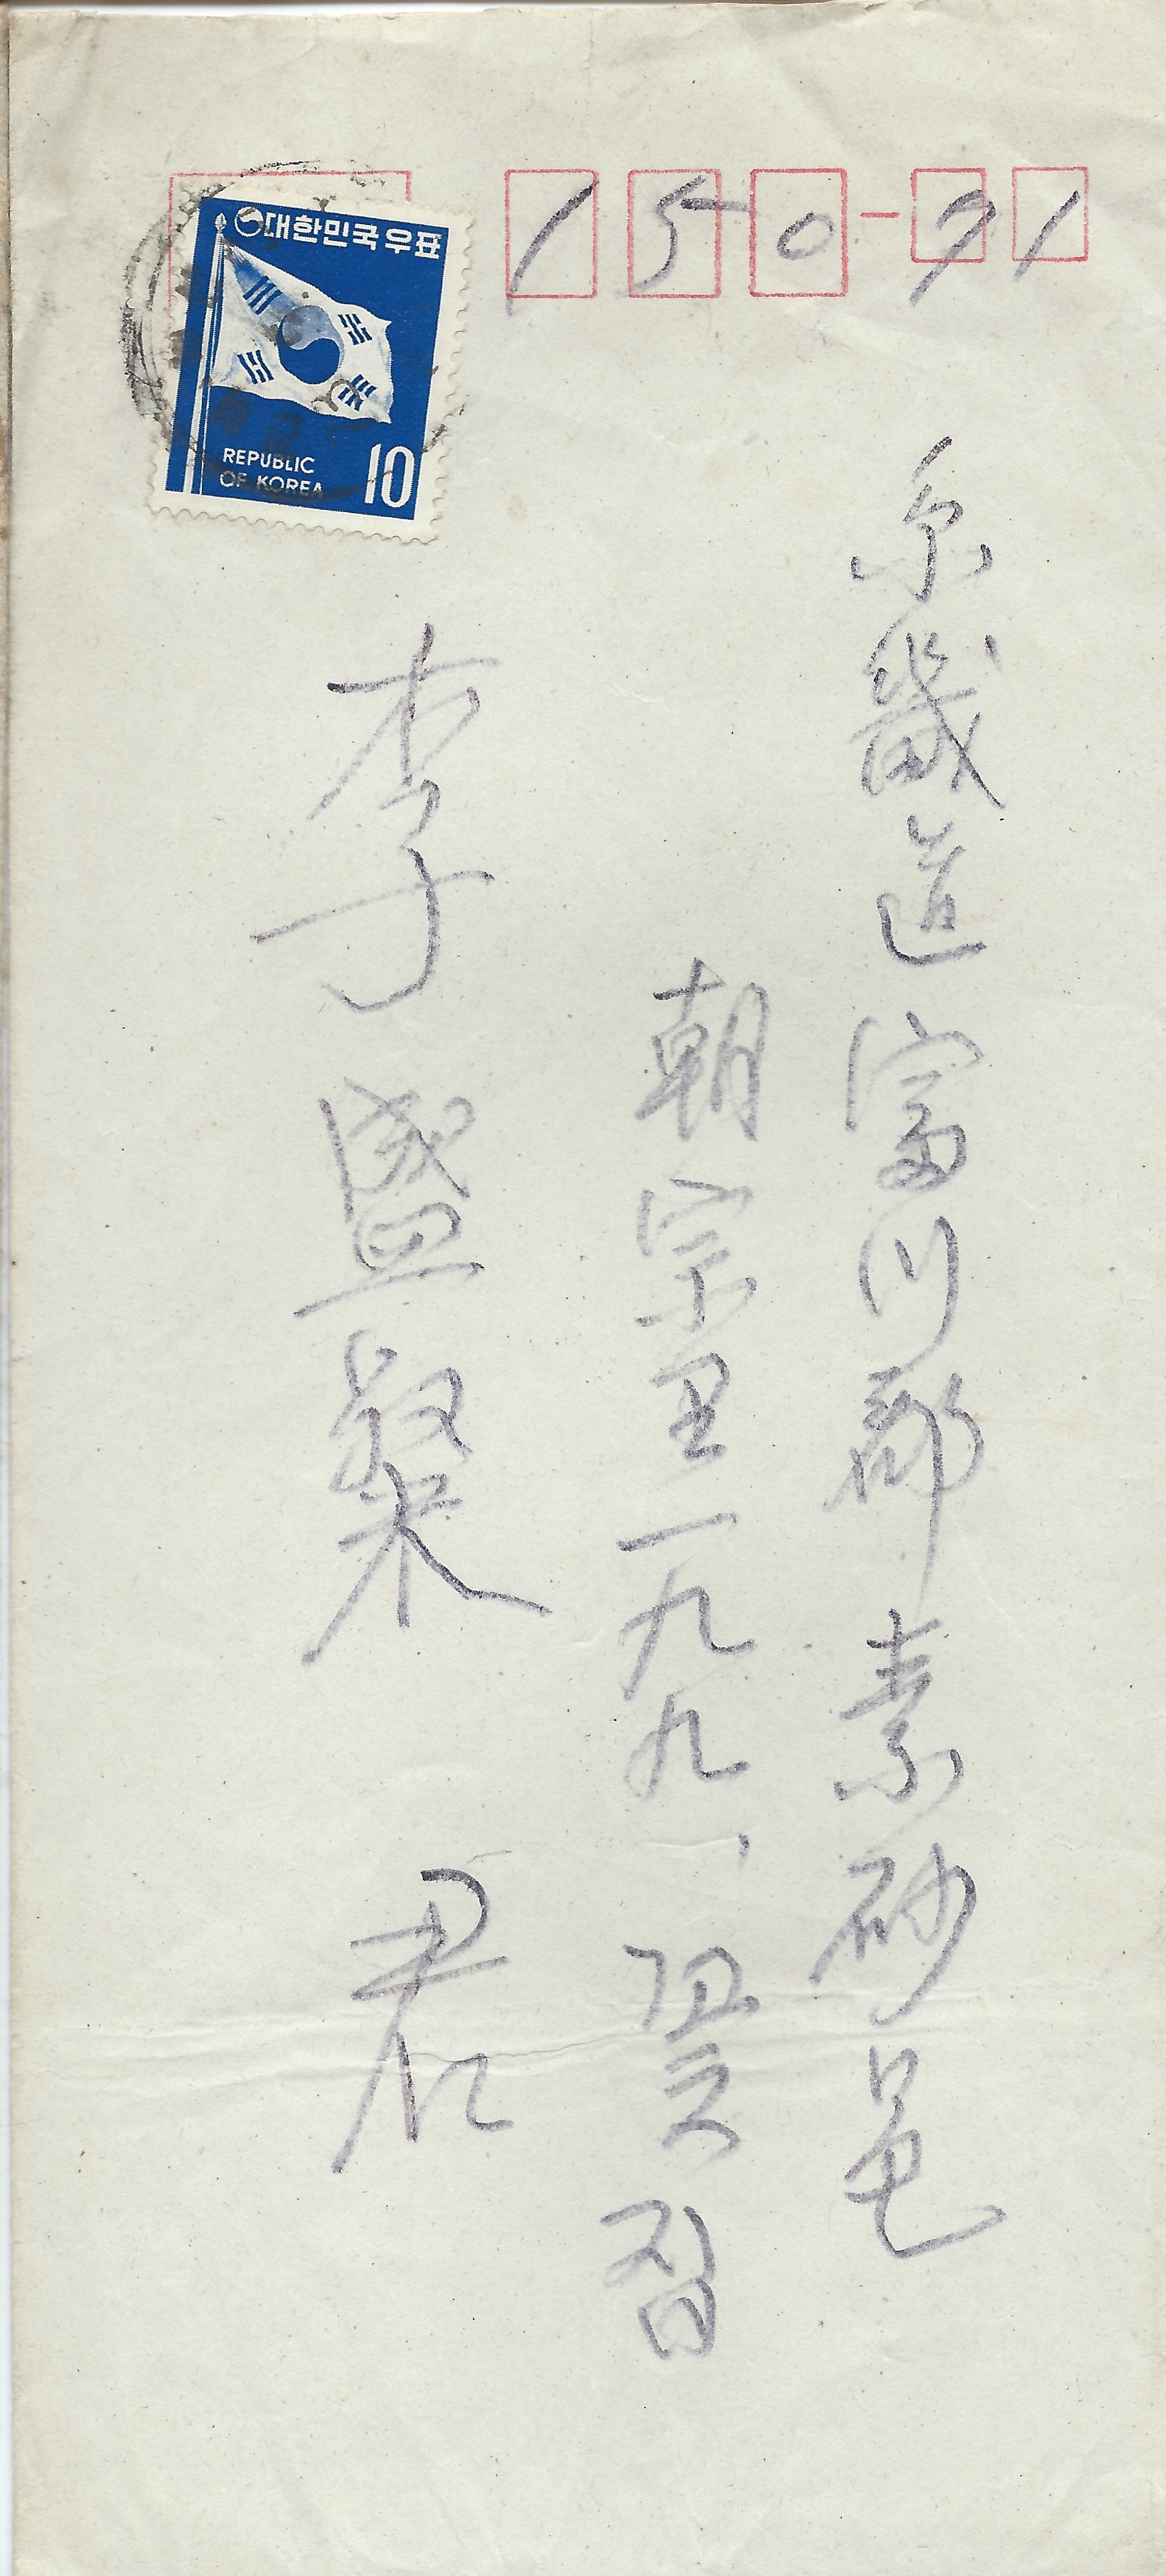 대한민국우표
REPUBLIC
OF KOREA
10
150-71
京畿道 富川郡 素砂邑
朝宗里一九九、꽃집
李盛粲 君